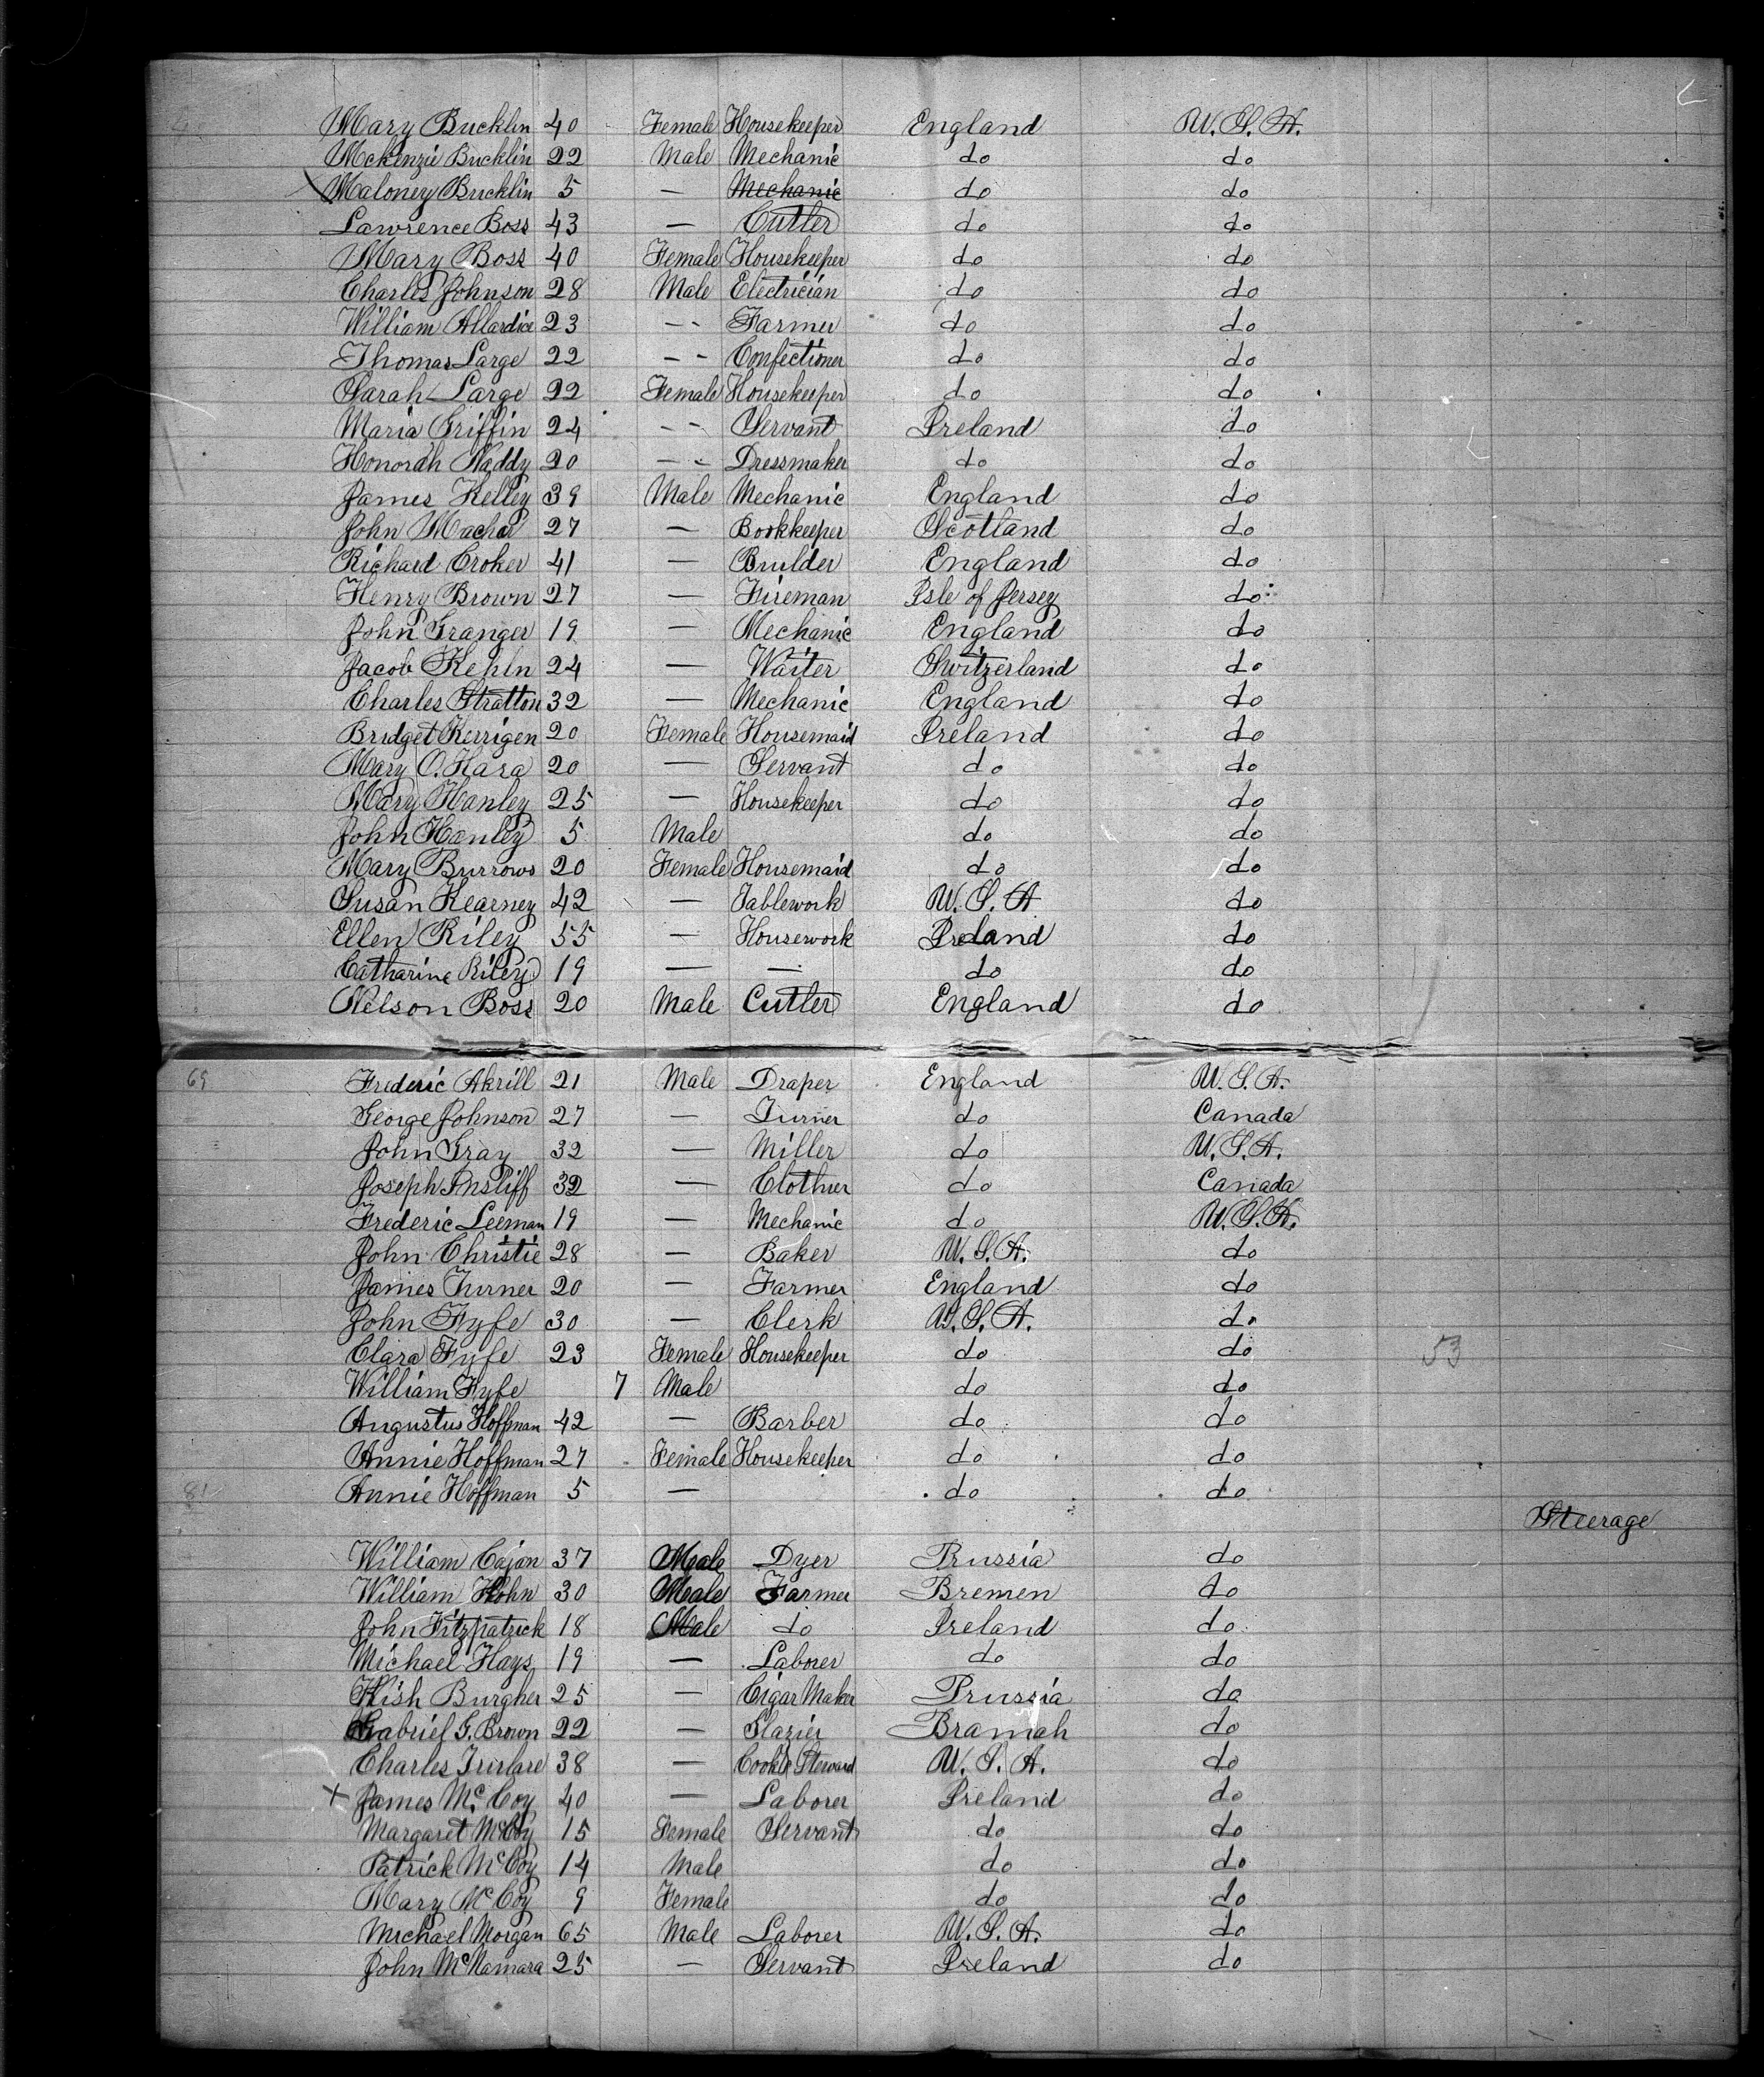 Mary Bucklin 40 Female Housekeeper England U.S.A.
Mckenzie Bucklin 22 Male Mechanic do do
Maloney Bucklin 5 — Mechanic do do
Lawrence Boss 43 — Cutler do do
Mary Boss 40 Female Housekeeper do do
Charles Johnson 28 Male Electrician do do
William Allardice 23 -- Farmer do do
Thomas Large 22 -- Confectioner do do
Sarah Large 22 Female Housekeeper do do
Maria Griffin 24 -- Servant Ireland do
Honorah Naddy 20 -- Dressmaker do do
James Kelley 39 Male Mechanic England do
John Machar 27 — Bookkeeper Scotland do
Richard Croker 41 — Builder England do
Henry Brown 27 — Fireman Isle of Jersey do
John Granger 19 — Mechanic England do
Jacob Kehln 24 — Waiter Switzerland do
Charles Stratton 32 — Mechanic England do
Bridget Kerrigen 20 Female Housemaid Ireland do
Mary O.Hara 20 — Servant do do
Mary Hanley 25 — Housekeeper do do
John Hanley 5 Male do do
Mary Burrows 20 Female Housemaid do do
Susan Kearney 42 — Tablework U.S.A do
Ellen Riley 55 — Housework Ireland do
Catharine Riley 19 — — do do
Nelson Boss 20 Male Cutler England do
69 Frederic Akrill 21 Male Draper England U.S.A.
George Johnson 27 — Turner do Canada
John Gray 32 — Miller do U.S.A.
Joseph Insliff 32 — Clothier do Canada
Frederic Leeman 19 — Mechanic do U.S.A.
John Christie 28 — Baker U.S.A. do
James Turner 20 — Farmer England do
John Fyfe 30 — Clerk U.S.A. do
Clara Fyfe 23 Female Housekeeper do do 53
William Fyfe 7 Male do do
Augustus Hoffman 42 — Barber do do
Annie Hoffman 27 Female Housekeeper do do
81 Annie Hoffman 5 — do do
Steerage
William Cajan 37 Male Dyer Prussia do
William Hohn 30 Male Farmer Bremen do
John Fitzpatrick 18 Male do Ireland do
Michael Hays 19 — Laborer do do
Kish Burgher 25 — Cigar Maker Prussia do
Gabriel G. Brown 22 — Glazier Bramah do
Charles 38 — Cook & Steward U.S.A. do
x James McCoy 40 — Laborer Ireland do
Margaret McCoy 15 Female Servant do do
Patrick McCoy 14 Male do do
Mary McCoy 9 Female do do
Michael Morgan 65 Male Laborer U.S.A. do
John McNamara 25 — Servant Ireland do